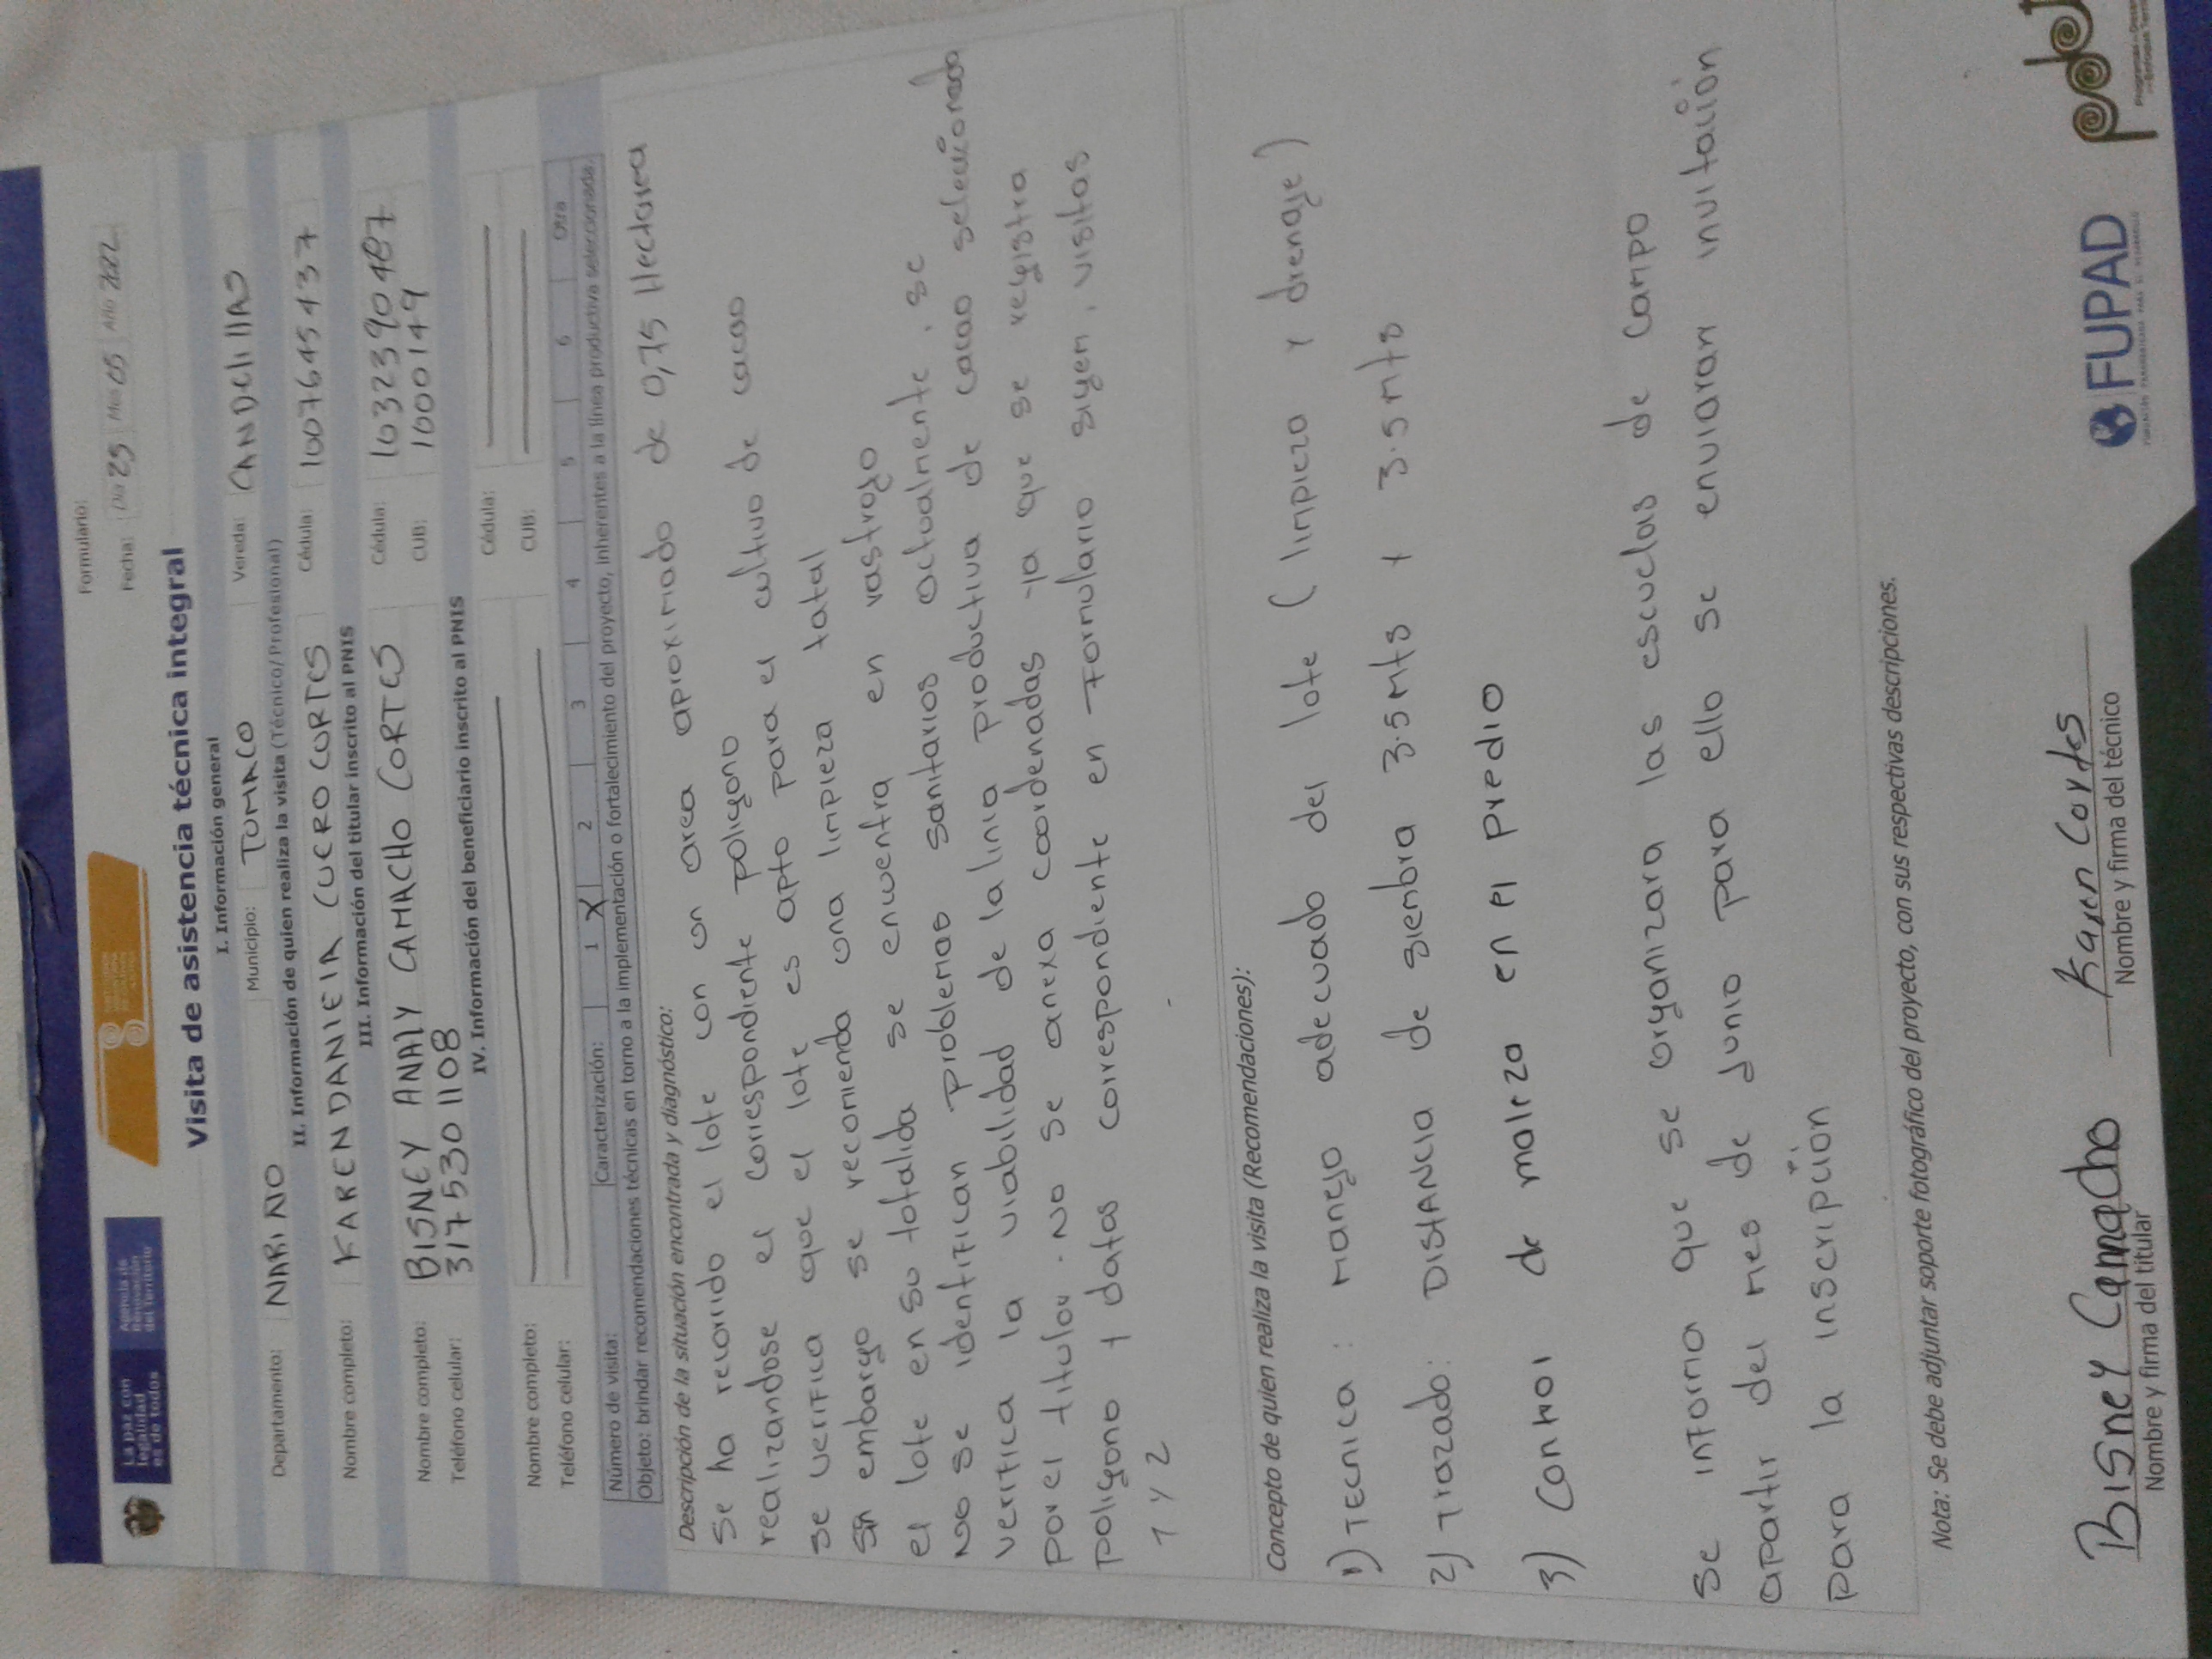 La paz con
legalidad
es de todos
Agencia de
Renovación
del Territorio
Formulario:
Fecha: Día 25 Mes 05 Año 2022
Visita de asistencia técnica integral
I. Información general
Departamento: NARIÑO Municipio: TUMACO Vereda: CANDElillAS
II. Información de quien realiza la visita (Técnico/Profesional)
Nombre completo: KAREN DANIElA CUERO CORTES Cédula: 1007645437
III. Información del titular inscrito al PNIS
Nombre completo: BISNEY ANAlY CAMACHO CORTES Cédula: 1032390487
Teléfono celular: 3175301108 CUB: 1000149
IV. Información del beneficiario inscrito al PNIS
Nombre completo: Cédula:
Teléfono celular: CUB:
Número de visita: Caracterización: 1 X 2 3 4 5 6 Otra
Objeto: brindar recomendaciones técnicas en torno a la implementación o fortalecimiento del proyecto, inherentes a la línea productiva seleccionada.
Descripción de la situación encontrada y diagnóstico:
Se ha recorrido el lote con un area aproximado de 0,75 Hectarea
realizandose el correspondiente poligono
se verifica que el lote es apto para el cultivo de cacao
sin embargo se recomienda una limpieza total
el lote en su totalida se encuentra en vastrojo
No se identifican problemas sanitarios actualmente, se
verifica la viabilidad de la linia productiva de cacao seleccionada
por el titular. No se anexa coordenadas ya que se registra
poligono y datos correspondiente en Formulario sigen, visitas
1 y 2
Concepto de quien realiza la visita (Recomendaciones):
1) TECNICA: Manejo adecuado del lote (limpieza y drenaje)
2) Trazado: DIStANCIA de siembra 3.5 Mts + 3.5 mts
3) Control de maleza en el predio
Se informa que se organizara las escuelas de campo
apartir del mes de Junio para ello se enviaran invitación
para la inscripción
Nota: Se debe adjuntar soporte fotográfico del proyecto, con sus respectivas descripciones.
BISNEY Camacho Karen Cortes
Nombre y firma del titular Nombre y firma del técnico
FUPAD
pdet